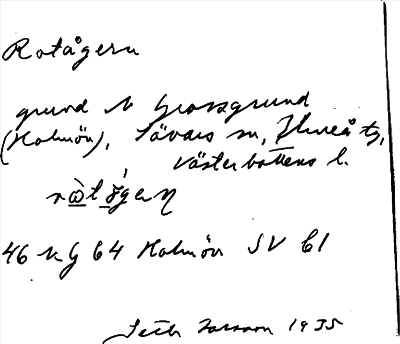 Rotågern
grund N Grossgrund
(Holmön), Sävars sn, Umeå tg,
Västerbottens l.
46 N G 64 Holmön SV 61
1935